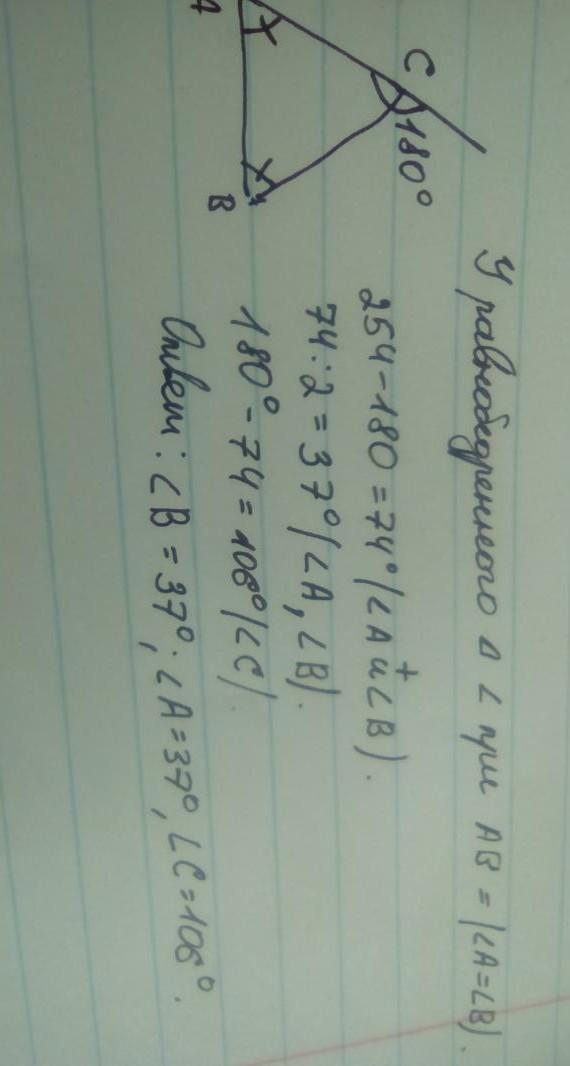 A
C
180°
B
У равнобедренного Δ ∠ при AB = (∠A=∠B).
254-180=74° (∠A и ∠B).
+
74:2=37° (∠A, ∠B).
180°-74=106° (∠C)
Ответ: ∠B=37°, ∠A=37°, ∠C=106°.